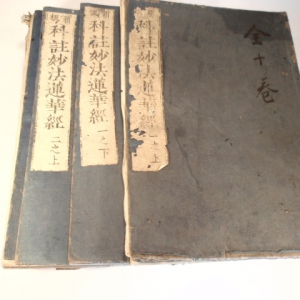 全十巻
科註妙法蓮華經 一之上
科註妙法蓮華經 一之下
科註妙法蓮華經 二之上